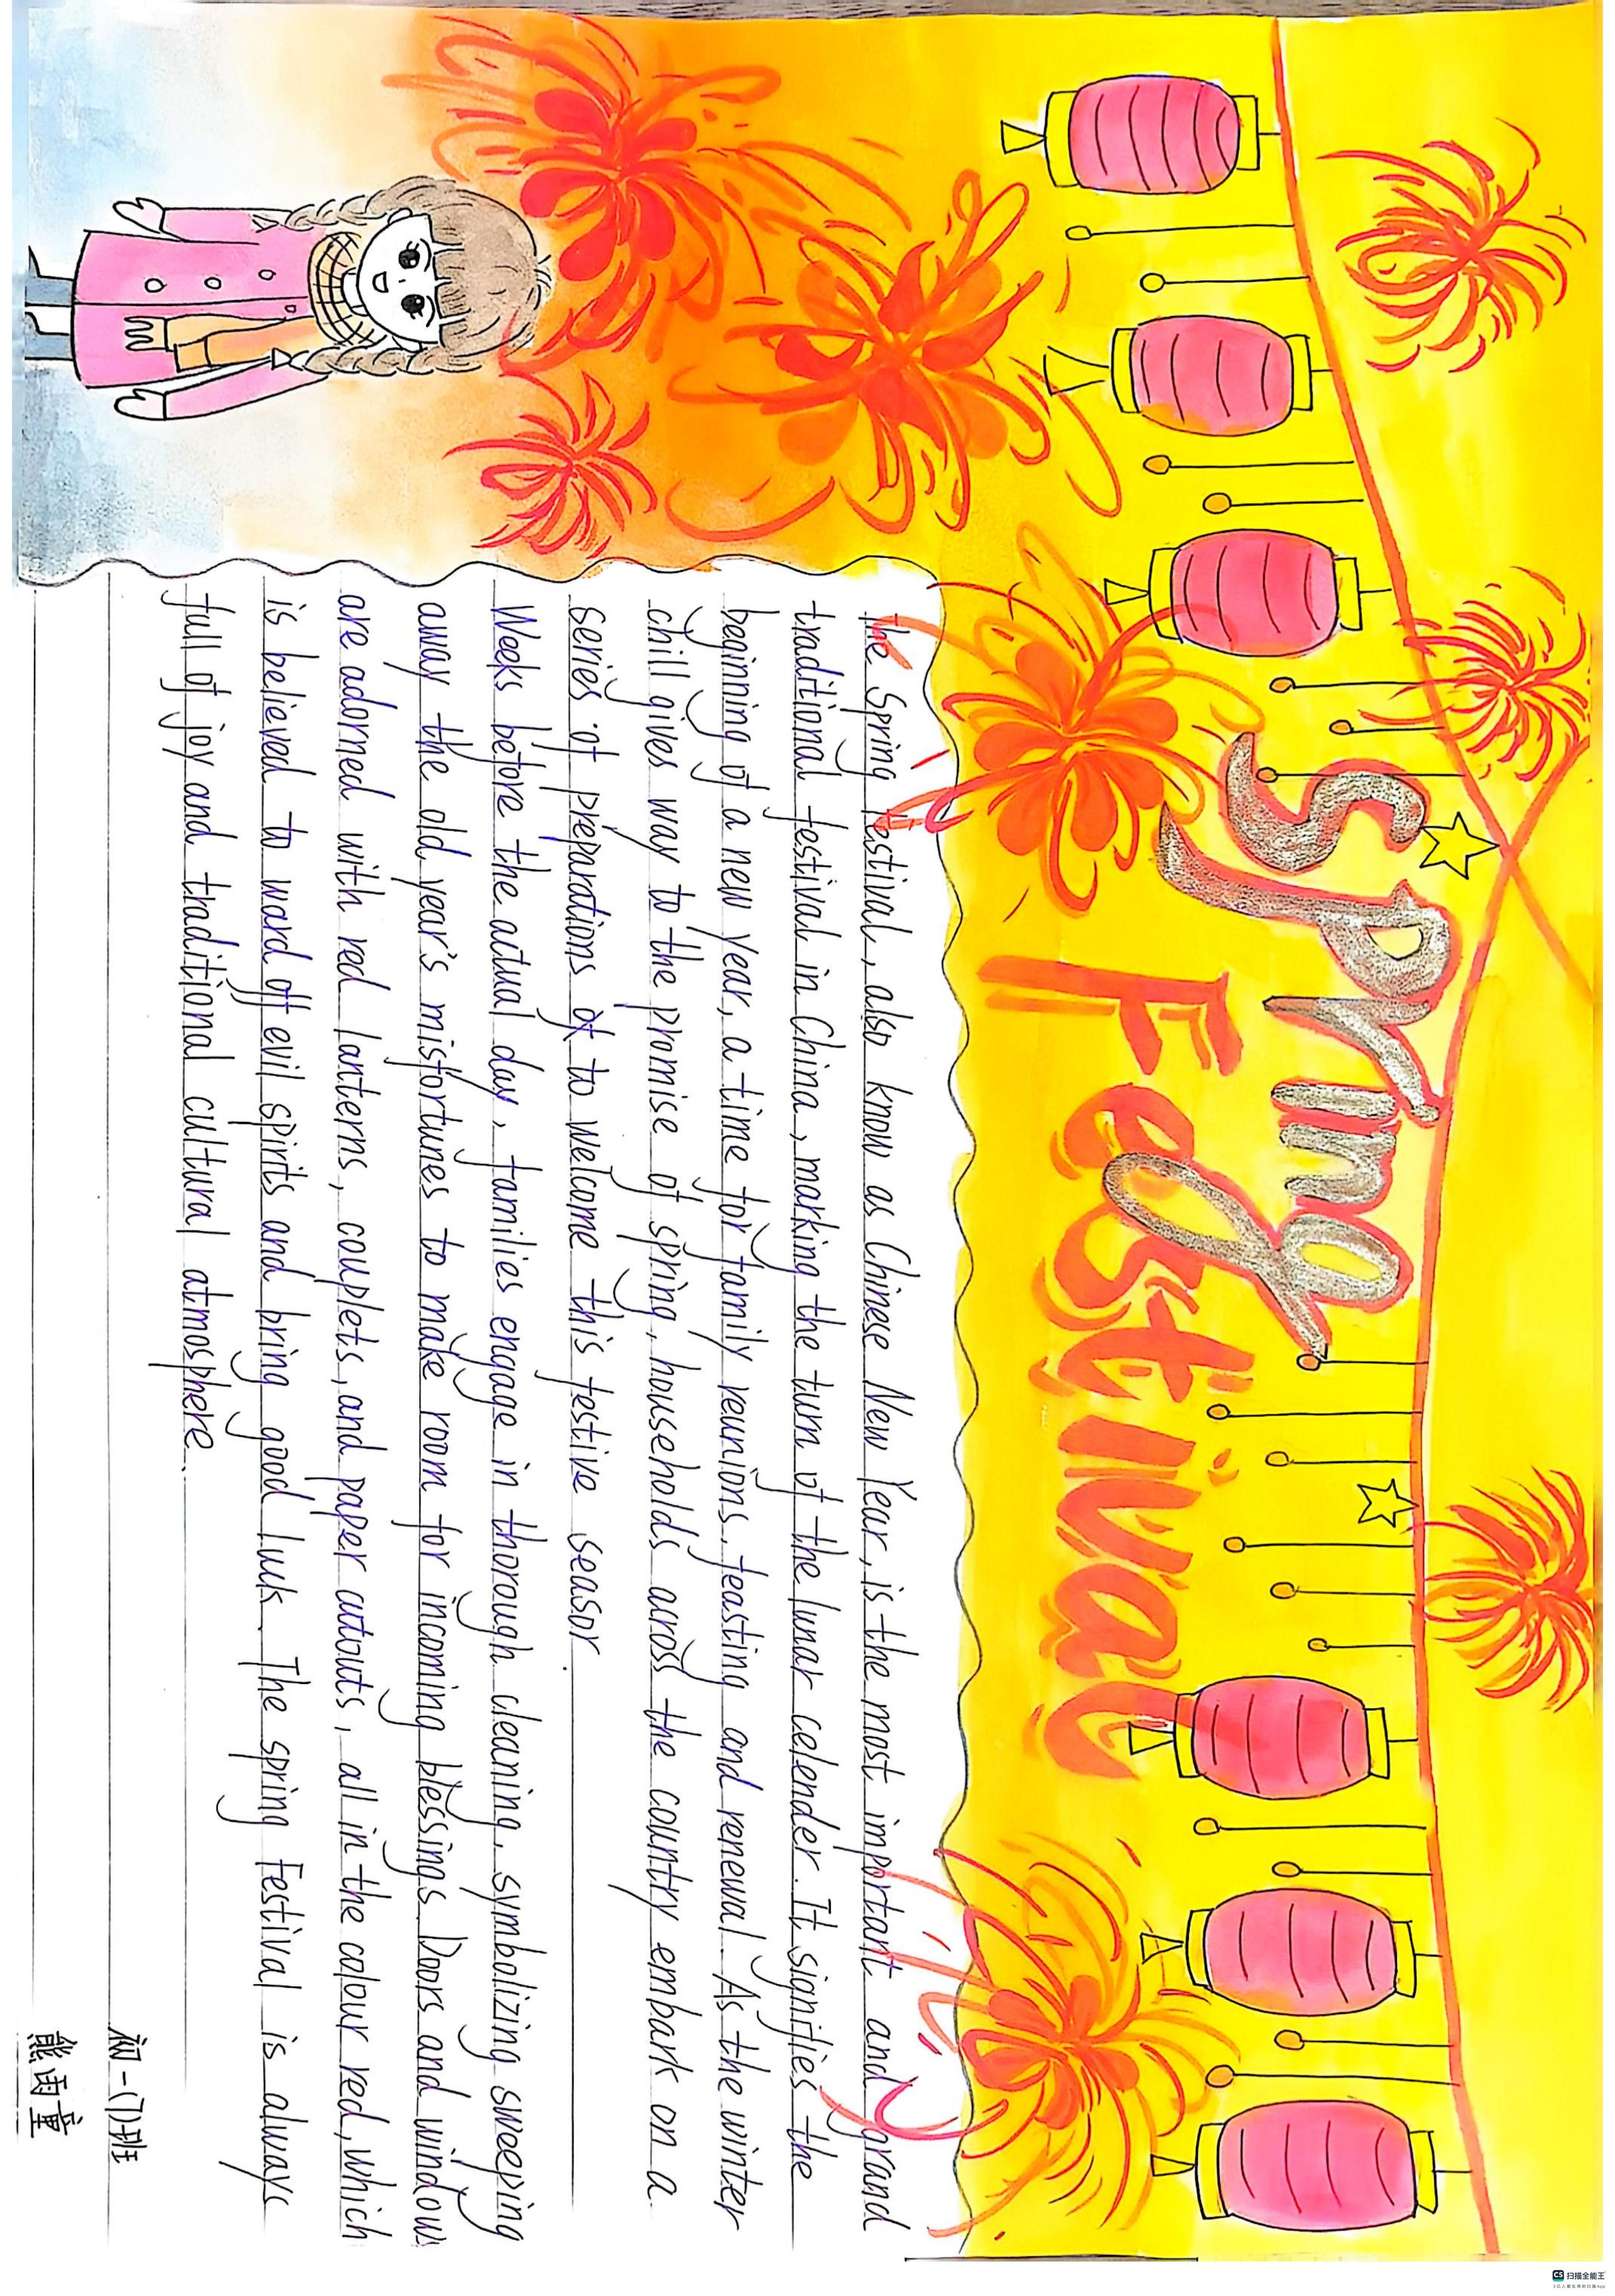 Spring
Festival
the Spring Festival, also know as Chinese New Year, is the most important and grand
traditional festival in China, marking the turn of the lunar celender. It signifies the
beginning of a new year, a time for family reunions, feasting and renewal. As the winter
chill gives way to the promise of spring, households across the country embark on a
series of preparations to welcome this festive season.
Weeks before the actual day, families engage in thorough cleaning, symbolizing sweeping
away the old year's misfortunes to make room for incoming blessings. Doors and windows
are adorned with red lanterns, couplets, and paper cutouts, all in the colour red, which
is believed to ward off evil spirits and bring good luck. The spring Festival is always
full of joy and traditional cultural atmosphere.
初一(7)班
熊雨童
CS 扫描全能王
3亿人都在用的扫描App